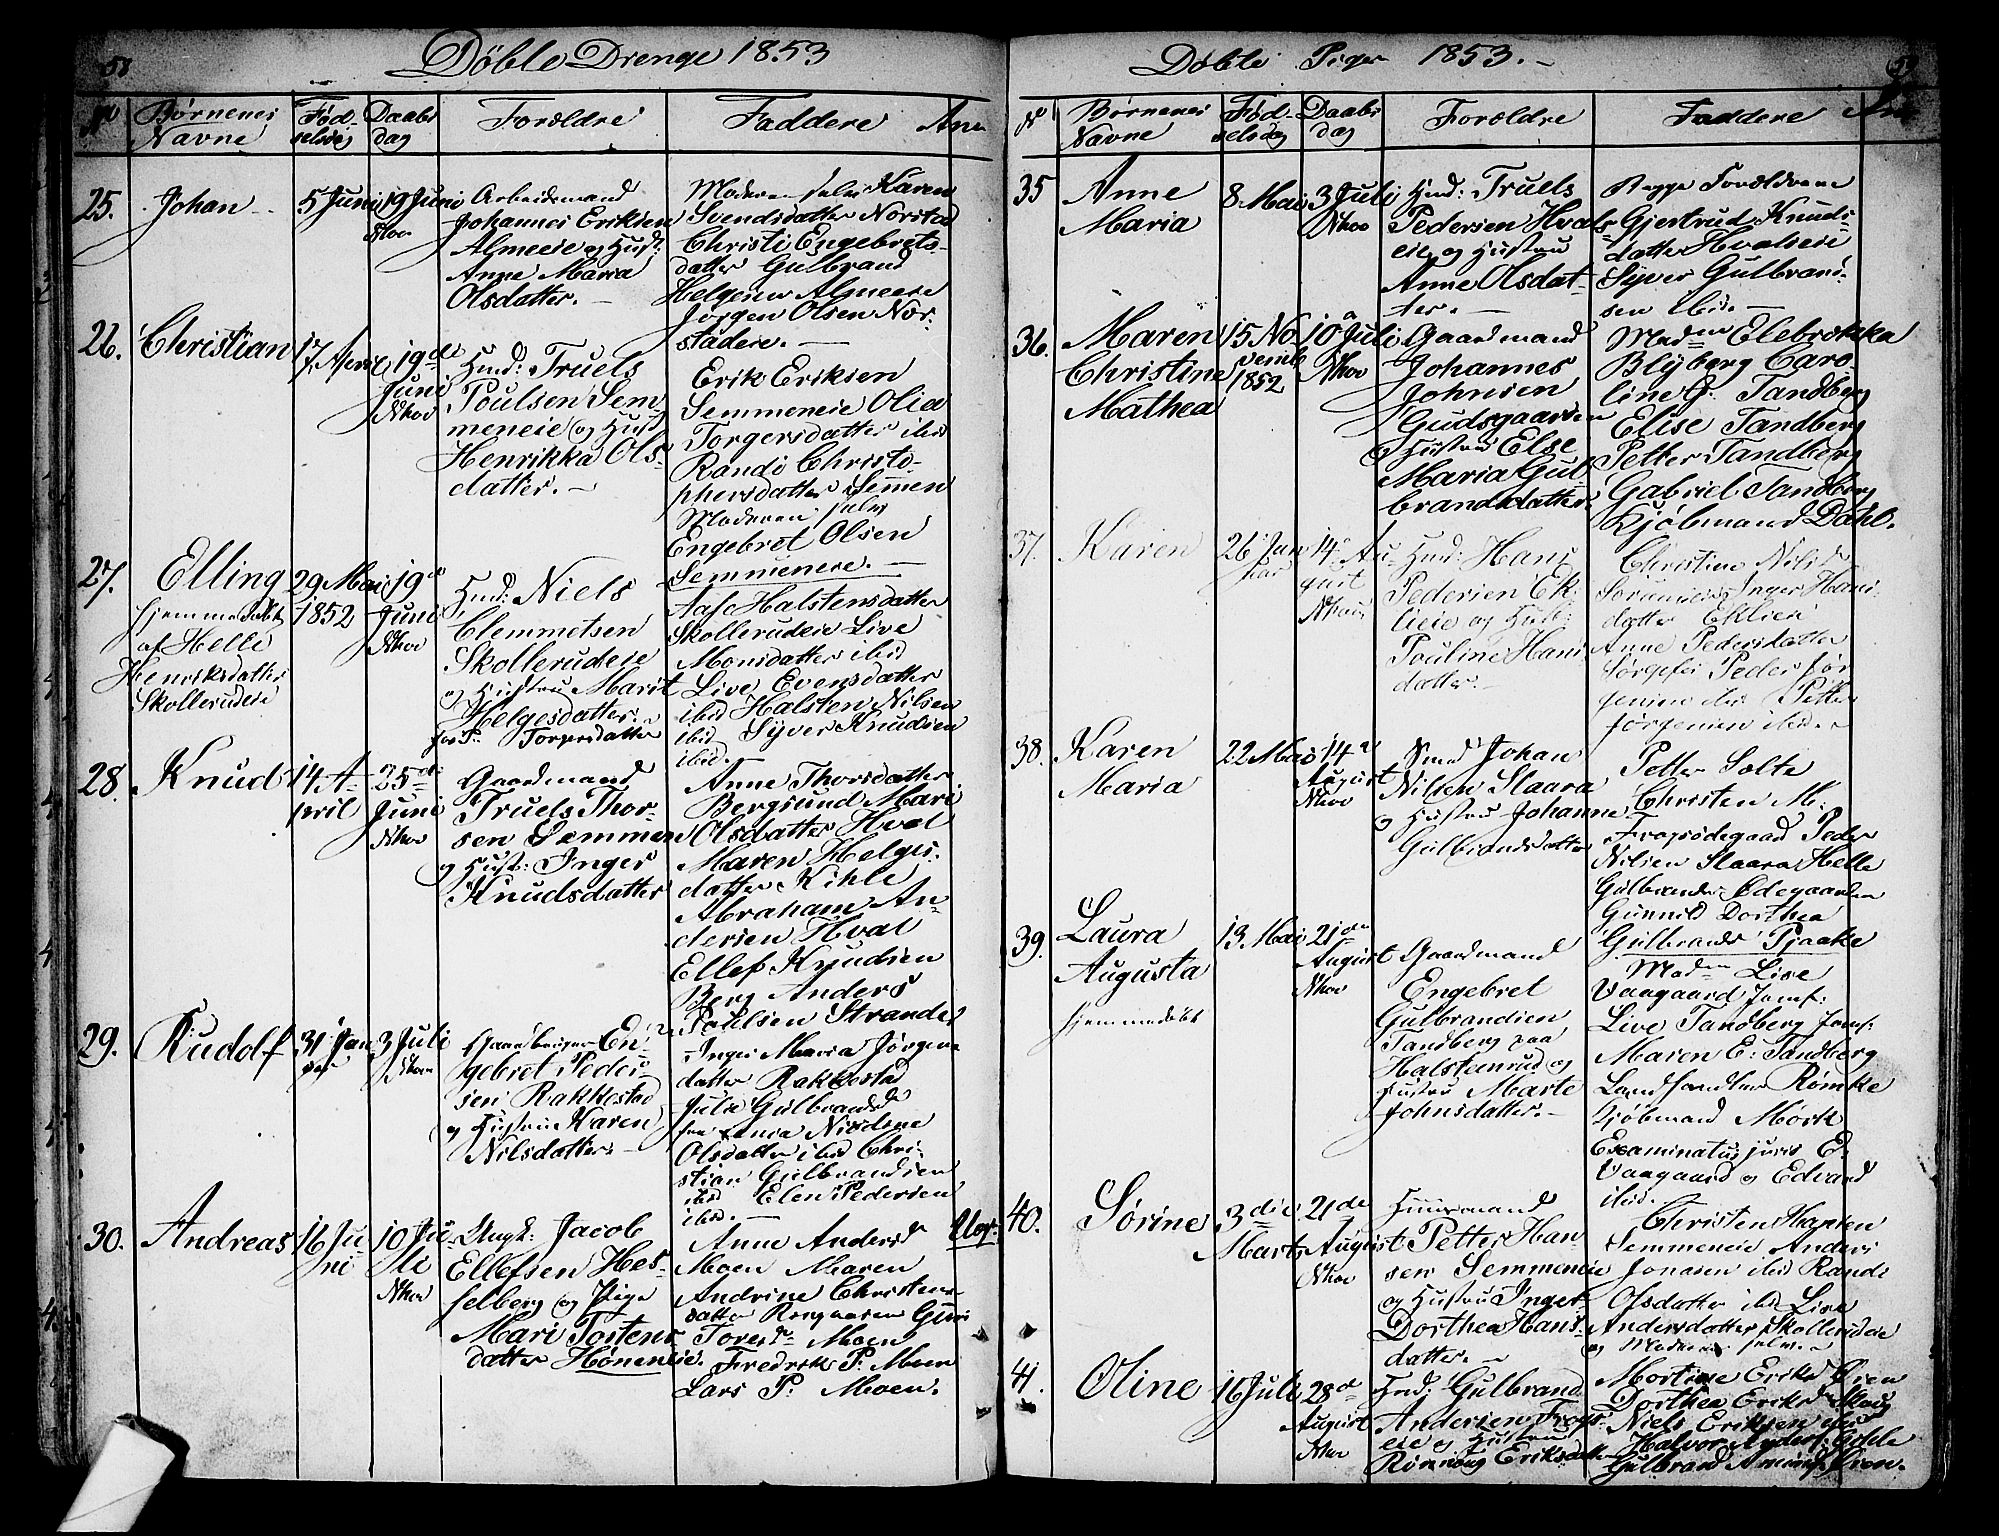 58
Döbte Drenge 1853
No
Børnenes Navne
Fødselsdag
Daabsdag
Forældre
Faddere
Anm
25.
Johan
5 Juni
19 Juni
Nkov
Arbeidsmand
Johannes Eriksen
Almeeie og Hust:
Anne Maria
Olsdatter.
Moderen selv Karen
Svendsdatter Norstad
Christi Engebrets-
datter Gulbrand
Helgesen Almeeie
Jörgen Olsen Nor-
stadeie.
26.
Christian
17 April
19de
Juni
Nkov
Hmd: Truels
Poulsen Sem
meneie og Hust
Henrikka Ols-
datter.
Erik Eriksen
Semmeneie Olia
Torgersdatter ibid
Randi Christo-
phersdatter Semmen
Moderen selv
Engebret Olsen
Semmeneie.
27.
Elling
hjemmedöbt
af Helle
Henriksdatter
Skollerudeie
29. Mai
1852
19de
Juni
Nkov
Hmd: Niels
Clemmetsen
Skollerudeie
og Hustru Marit
Helgesdatter.
Torgersdatter
Aase Halstensdatter
Skollerudeie Live
Monsdatter ibid
Live Evensdatter
ibid Halsten Nilsen
ibid Syver Knudsen
ibid.
28.
Knud
14 A-
pril
25de
Juni
Nkov
Gaardmand
Truels Thor-
sen Semmen
og Hust: Inger
Knudsdatter
Anne Thorsdatter
Bergsund Mari
Olsdatter Hval
Maren Helges-
datter Kihle
Abraham An-
dersen Hval
Ellef Knudsen
Berg Anders
Poulsen Strande
29.
Rudolf
31 Jan
uar
3 Juli
Nkov
Gaardbruger En-
gebret Peder-
sen Rakkestad
og Hustru Karen
Nilsdatter.
Inger Maria Jörgens
datter Rakkestad
Julie Gulbrandsd
Olsdatter ibid Chri-
stian Gulbrandsen
ibid Elen Pedersen
ibid.
30.
Andreas
16 Ju-
ni
10 Ju-
li
Nkov
Ungk: Jacob
Ellefsen Hes-
selberg og Pige
Mari Tostens
datter Höneneie.
Anne Andersd
Moen Maren
Andrine Christens-
datter Guri
Toresdr Moen
Fredrik P: Moen
Lars P: Moen.
Uægt.
59
Döbte Piger 1853.
No
Børnenes Navne
Fødselsdag
Daabsdag
Forældre
Faddere
Anm
35
Anne
Maria
8 Mai
3 Juli
Nkov
Hmd: Truels
Pedersen Hvals-
eie og Hustru
Anne Olsdat-
ter.
Begge Forældrene
Gjertrud Knuds-
datter Hvalseie
Syver Gulbrand-
sen ibid.
36.
Maren
Christine
Mathea
15 No
vemb
1852
10 Juli
Nkov
Gaardmand
Johannes
Johnsen
Gudsgaarden
og Hustru Else
Maria Gul
brandsdatter.
Madmn Elebrekka
Blyberg Caro-
line G. Tandberg
Elise Tandberg
Petter Tandberg
Gabriel Tandberg
Kjöbmand Dahl.
37.
Karen
26 Jan
uar
14 Au-
gust
Nkov
Hmd: Hans
Pedersen Ek-
lieie og Hust:
Pouline Hans-
datter.
Christine Nilsd
Inger Hans-
datter Eklieie
Anne Pedersdatter
Sörgefos Peder Jör
gensen ibid Petter
Jörgensen ibid.
38.
Karen
Maria
22 Mai
14
August
Nkov
Smed Johan
Nilsen Slaara
og Hustru Johanne
Gulbrandsdatter
Petter Solte
Christen M:
Frogsödegaard Peder
Nilsen Slaara Helle
Gulbrandsd Ödegaarden
Gunnild Dorthea
Gulbrandsd Pjaake
39.
Laura
Augusta
hjemmedöbt
13. Mai
21de
August
Nkov
Gaardmand
Engebret
Gulbrandsen
Tandberg paa
Halstenrud og
Hustru Marte
Johnsdatter.
Madmn Live
Vaagaard Jomf:
Live Tandberg Jomf:
Maren E: Tandberg
Landhandler Römke
Kjöbmand Mörk
Examinatus juris E.
Vaagaard og Edvard
ibid.
40.
Sörine
3die
Marts
21de
August
Nkov
Huusmand
Petter Han-
sen Semmeneie
og Hustru Inger
Dorthea Hans-
datter.
Christen Hansen
Semmeneie Anders
Jonasen ibid Randi
Olsdatter ibid Live
Andersdatter Skollerudeie
og Moderen selv.
41.
Oline
16 Juli
28de
August
Nkov
Hmd: Gulbrand
Andersen Frogs-
eie og Hustru
Rönnaug Eriksdatter
Mortine Eriksd
Dorthea Eriksd
Niels Eriksen ibid
Halvor Anders:
Gulbrand